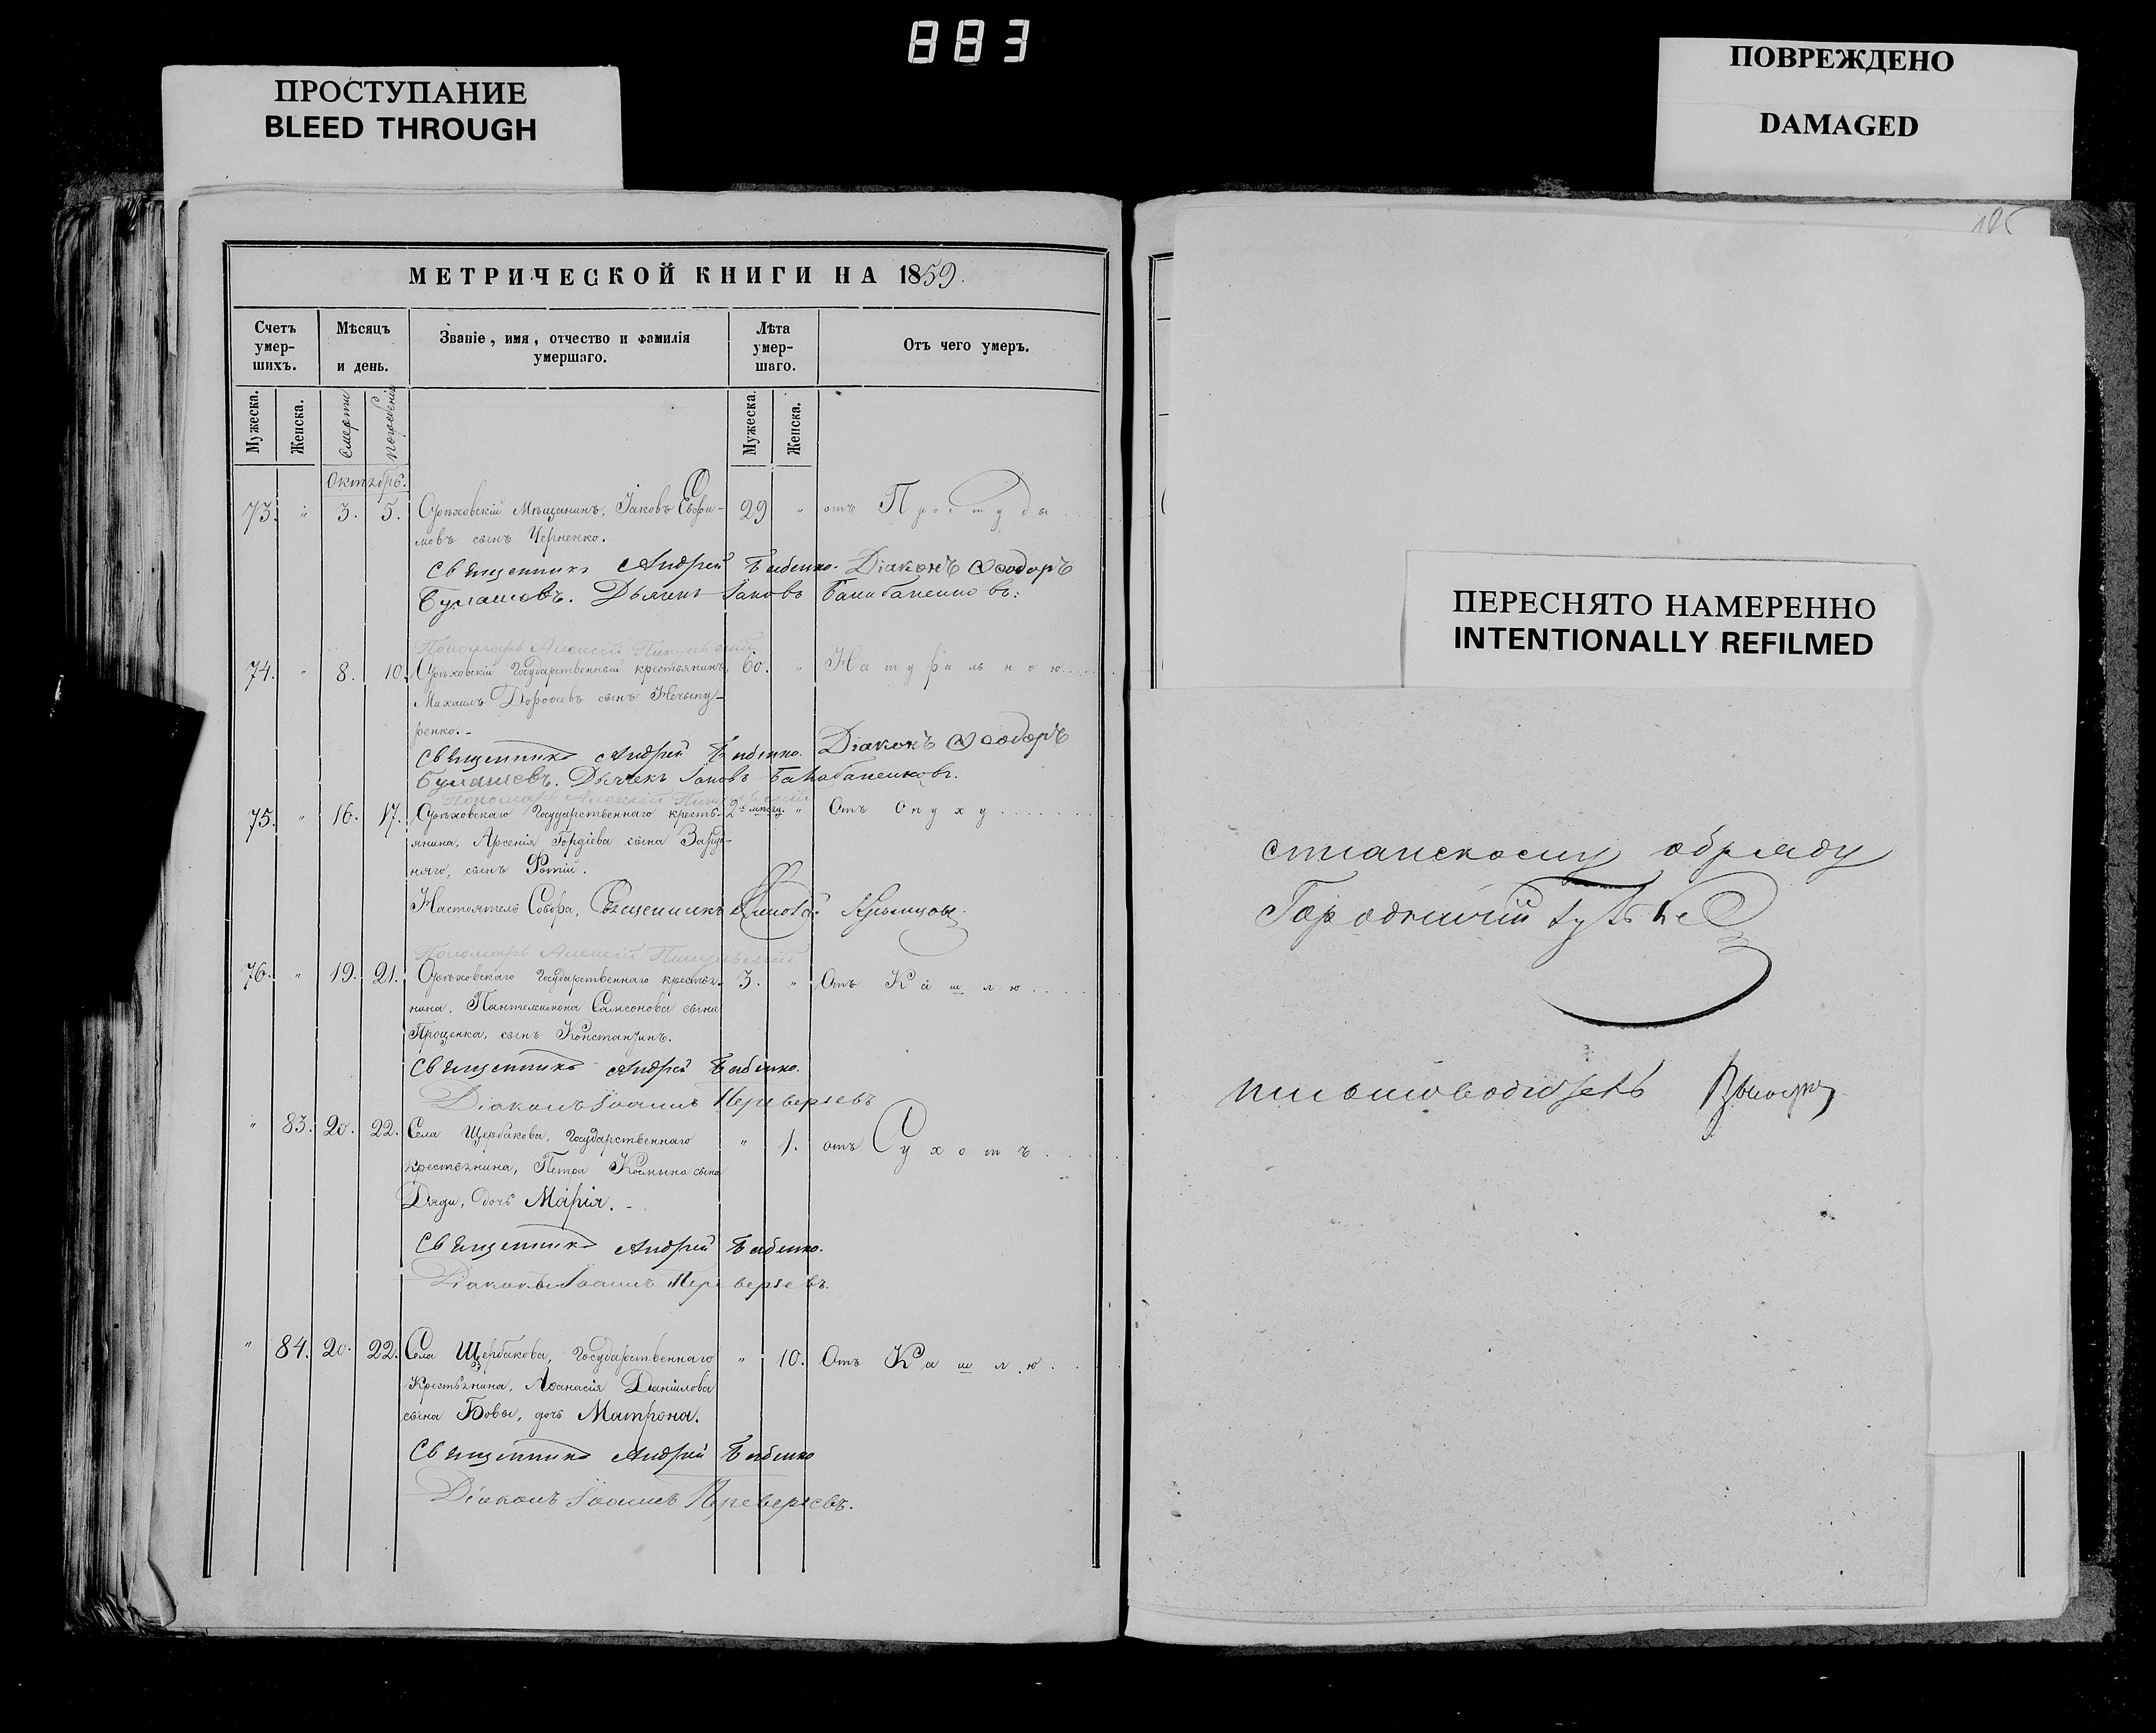 883
ПРОСТУПАНИЕ
BLEED THROUGH
ПОВРЕЖДЕНО
DAMAGED
МЕТРИЧЕСКОЙ КНИГИ НА 1859.
Счетъ умер-шихъ.
Мѣсяцъ и день.
Званіе, имя, отчество и фамилія умершаго.
Лѣта умер-шаго.
Отъ чего умеръ.
Мужеска. Женска. Смерти Погребенія Мужеска. Женска.
Октябрь.
73. " 3. 5. Орѣховскій Мѣщанинъ, Іаковъ Ефи- 29 " отъ Простуда
мовъ сынъ Черненко.
Священникъ Андрей Бабенко. Діаконъ Ѳеодоръ
Дьячекъ Іаковъ
Пономарь Алексій
74. " 8. 10. Орѣховскій Государственный крестьянинъ, 60. " Натуральною
Михаилъ Дороѳеевъ сынъ Нечипу-
ренко.
Священникъ Андрей Бабенко. Діаконъ Ѳеодоръ
Дьячекъ Іаковъ
Пономарь Алексій
75. " 16. 17. Орѣховскаго Государственнаго кресть- 2 " Отъ Опуху
янина, Арсенія Гордіева сына
сынъ Фотій.
Настоятель Собора, Священникъ
Пономарь Алексій
76. " 19. 21. Орѣховскаго Государственнаго крестья- 3. " Отъ Кашлю
нина, Пантелеимона Самсонова сына
Проценка, сынъ Константинъ.
Священникъ Андрей Бабенко.
Діаконъ Іоаннъ Переверзевъ
" 83. 20. 22. Села Щербакова, Государственнаго " 1. отъ Сухотъ
крестьянина, Петра сына
Дяди, дочь Марія.
Священникъ Андрей Бабенко.
Діаконъ Іоаннъ Переверзевъ.
" 84. 20. 22. Села Щербакова, Государственнаго " 10. Отъ Кашлю
Крестьянина, Аѳанасія Даніилова
сына Бовы, дочь Матрона.
Священникъ Андрей Бабенко
Діаконъ Іоаннъ Переверзевъ.
ПЕРЕСНЯТО НАМЕРЕННО
INTENTIONALLY REFILMED
стіанскому обряду
Городничій
письмоводитель